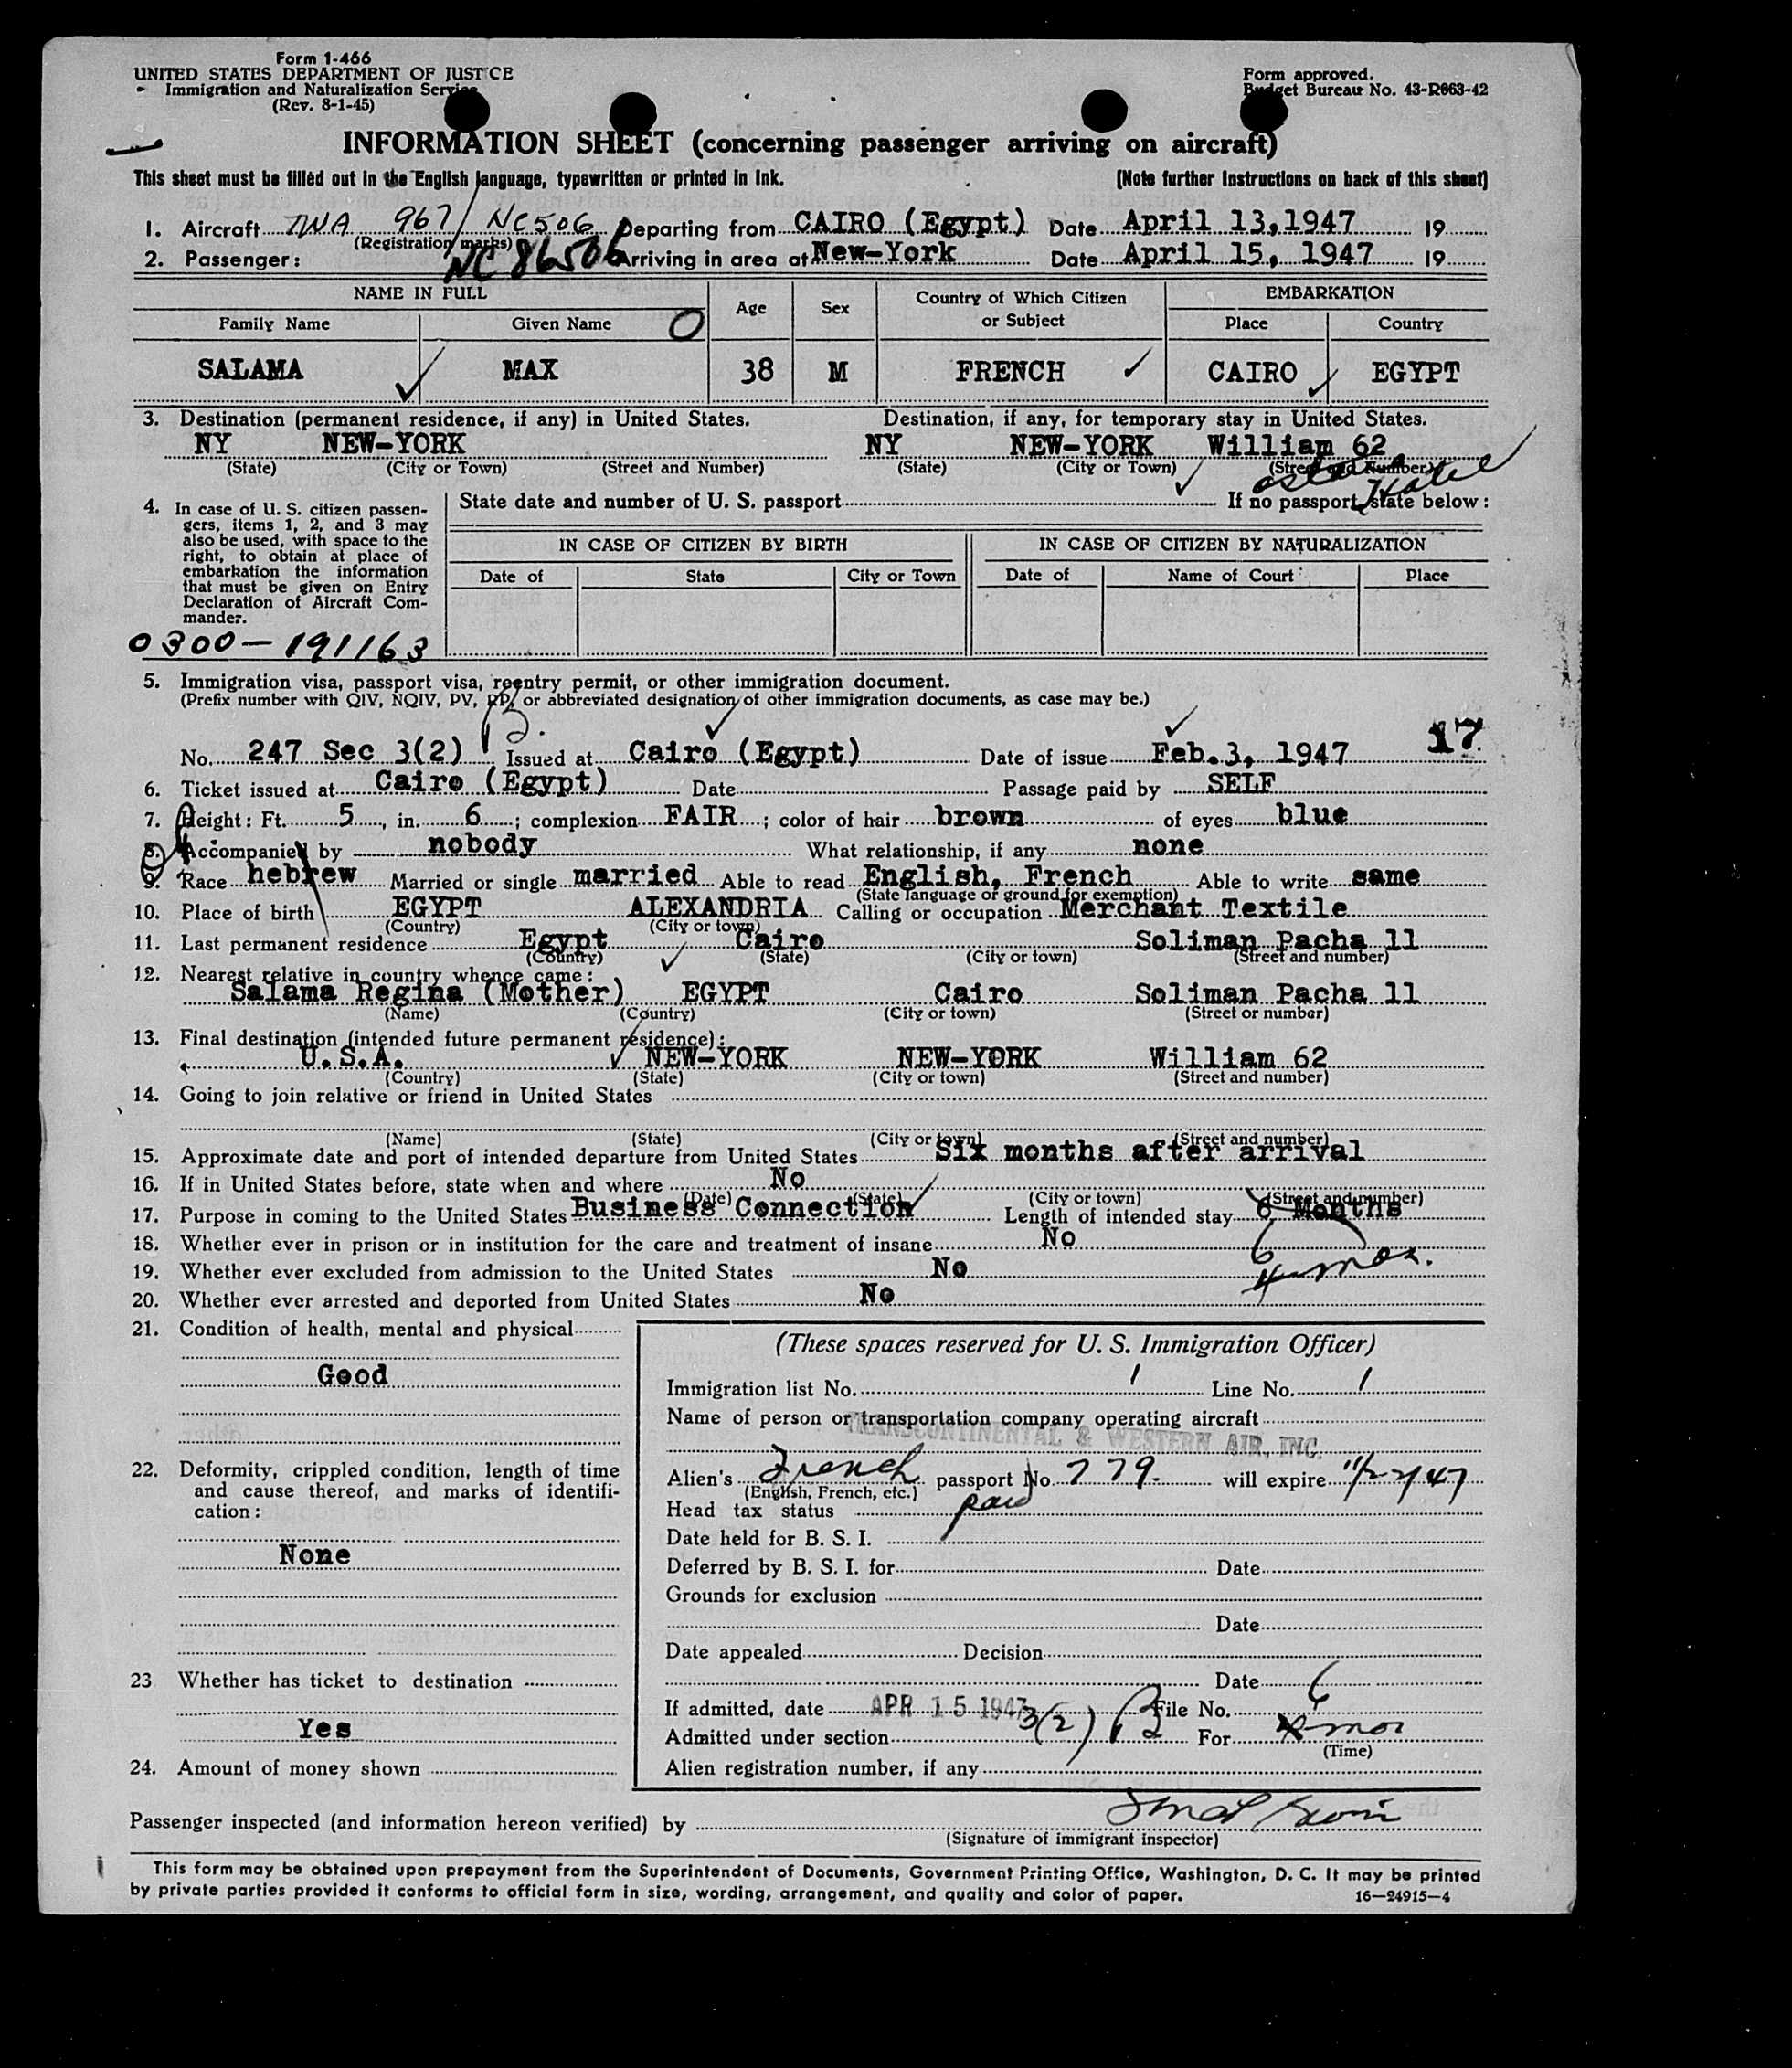 Form 1-466
UNITED STATES DEPARTMENT OF JUSTICE
Immigration and Naturalization Service
(Rev. 8-1-45)
Form approved.
Budget Bureau No. 43-R063-42
INFORMATION SHEET (concerning passenger arriving on aircraft)
This sheet must be filled out in the English language, typewritten or printed in ink. [Note further instructions on back of this sheet]
1. Aircraft TWA 967/ NC506 Departing from CAIRO (Egypt) Date April 13,1947 19
(Registration marks)
2. Passenger: NC 86506 Arriving in area at New-York Date April 15, 1947 19
NAME IN FULL Age Sex Country of Which Citizen or Subject EMBARKATION
Family Name Given Name O Place Country
SALAMA MAX 38 M FRENCH CAIRO EGYPT
3. Destination (permanent residence, if any) in United States. Destination, if any, for temporary stay in United States.
NY NEW-YORK NY NEW-YORK William 62
(State) (City or Town) (Street and Number) (State) (City or Town) (Street and Number)
Hotel
4. In case of U. S. citizen passen-
gers, items 1, 2, and 3 may
also be used, with space to the
right, to obtain at place of
embarkation the information
that must be given on Entry
Declaration of Aircraft Com-
mander.
State date and number of U. S. passport If no passport, state below:
IN CASE OF CITIZEN BY BIRTH IN CASE OF CITIZEN BY NATURALIZATION
Date of State City or Town Date of Name of Court Place
0300-191163
5. Immigration visa, passport visa, reentry permit, or other immigration document.
(Prefix number with QIV, NQIV, PV, RP, or abbreviated designation of other immigration documents, as case may be.)
17
No. 247 Sec 3(2) Issued at Cairo (Egypt) Date of issue Feb.3, 1947
6. Ticket issued at Cairo (Egypt) Date Passage paid by SELF
7. Height: Ft. 5, in. 6; complexion FAIR; color of hair brown of eyes blue
8. Accompanied by nobody What relationship, if any none
9. Race hebrew Married or single married Able to read English, French Able to write same
(State language or ground for exemption)
10. Place of birth EGYPT ALEXANDRIA Calling or occupation Merchant Textile
(Country) (City or town)
11. Last permanent residence Egypt Cairo Soliman Pacha 11
(Country) (State) (City or town) (Street and number)
12. Nearest relative in country whence came:
Salama Regina (Mother) EGYPT Cairo Soliman Pacha 11
(Name) (Country) (City or town) (Street or number)
13. Final destination (intended future permanent residence):
U.S.A. NEW-YORK NEW-YORK William 62
(Country) (State) (City or town) (Street and number)
14. Going to join relative or friend in United States
(Name) (State) (City or town) (Street and number)
15. Approximate date and port of intended departure from United States Six months after arrival
16. If in United States before, state when and where No
(Date) (State) (City or town) (Street and number)
17. Purpose in coming to the United States Business Connection Length of intended stay 6 Months
18. Whether ever in prison or in institution for the care and treatment of insane No
6
19. Whether ever excluded from admission to the United States No 4 mos.
20. Whether ever arrested and deported from United States No
21. Condition of health, mental and physical
Good
22. Deformity, crippled condition, length of time
and cause thereof, and marks of identifi-
cation:
None
23 Whether has ticket to destination
Yes
24. Amount of money shown
(These spaces reserved for U. S. Immigration Officer)
Immigration list No. 1 Line No. 1
Name of person or transportation company operating aircraft
TRANSCONTINENTAL & WESTERN AIR, INC.
Alien's French passport No. 779. will expire 11/22/47
(English, French, etc.)
Head tax status paid
Date held for B. S. I.
Deferred by B. S. I. for Date
Grounds for exclusion
Date
Date appealed Decision
Date
6
If admitted, date APR 15 1947 File No.
Admitted under section 3(2) For mos
(Time)
Alien registration number, if any
Passenger inspected (and information hereon verified) by
(Signature of immigrant inspector)
This form may be obtained upon prepayment from the Superintendent of Documents, Government Printing Office, Washington, D. C. It may be printed
by private parties provided it conforms to official form in size, wording, arrangement, and quality and color of paper. 16—24915—4